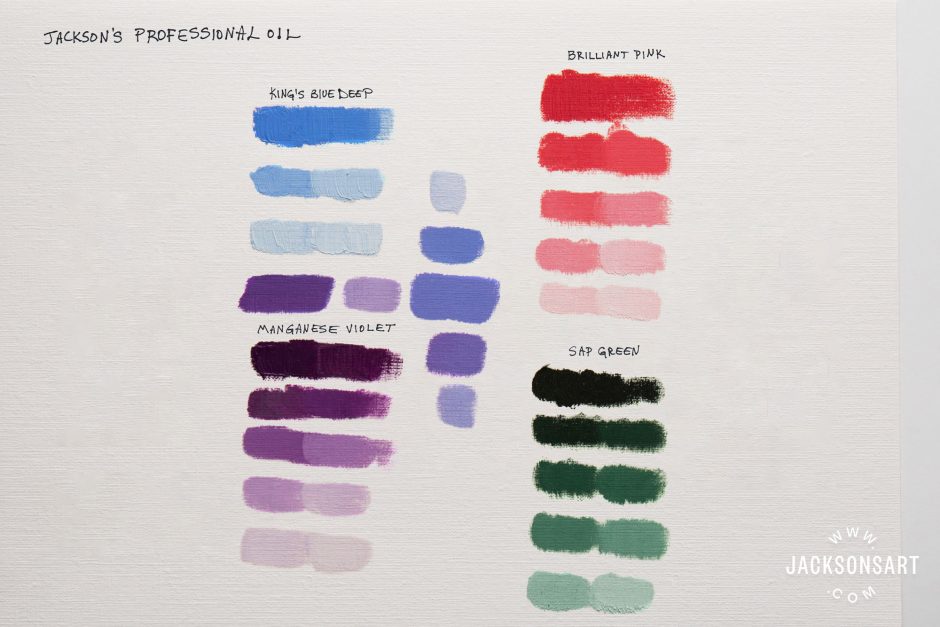 JACKSON'S PROFESSIONAL OIL
BRILLIANT PINK
KING'S BLUE DEEP
MANGANESE VIOLET
SAP GREEN
WWW.
JACKSONSART
.COM